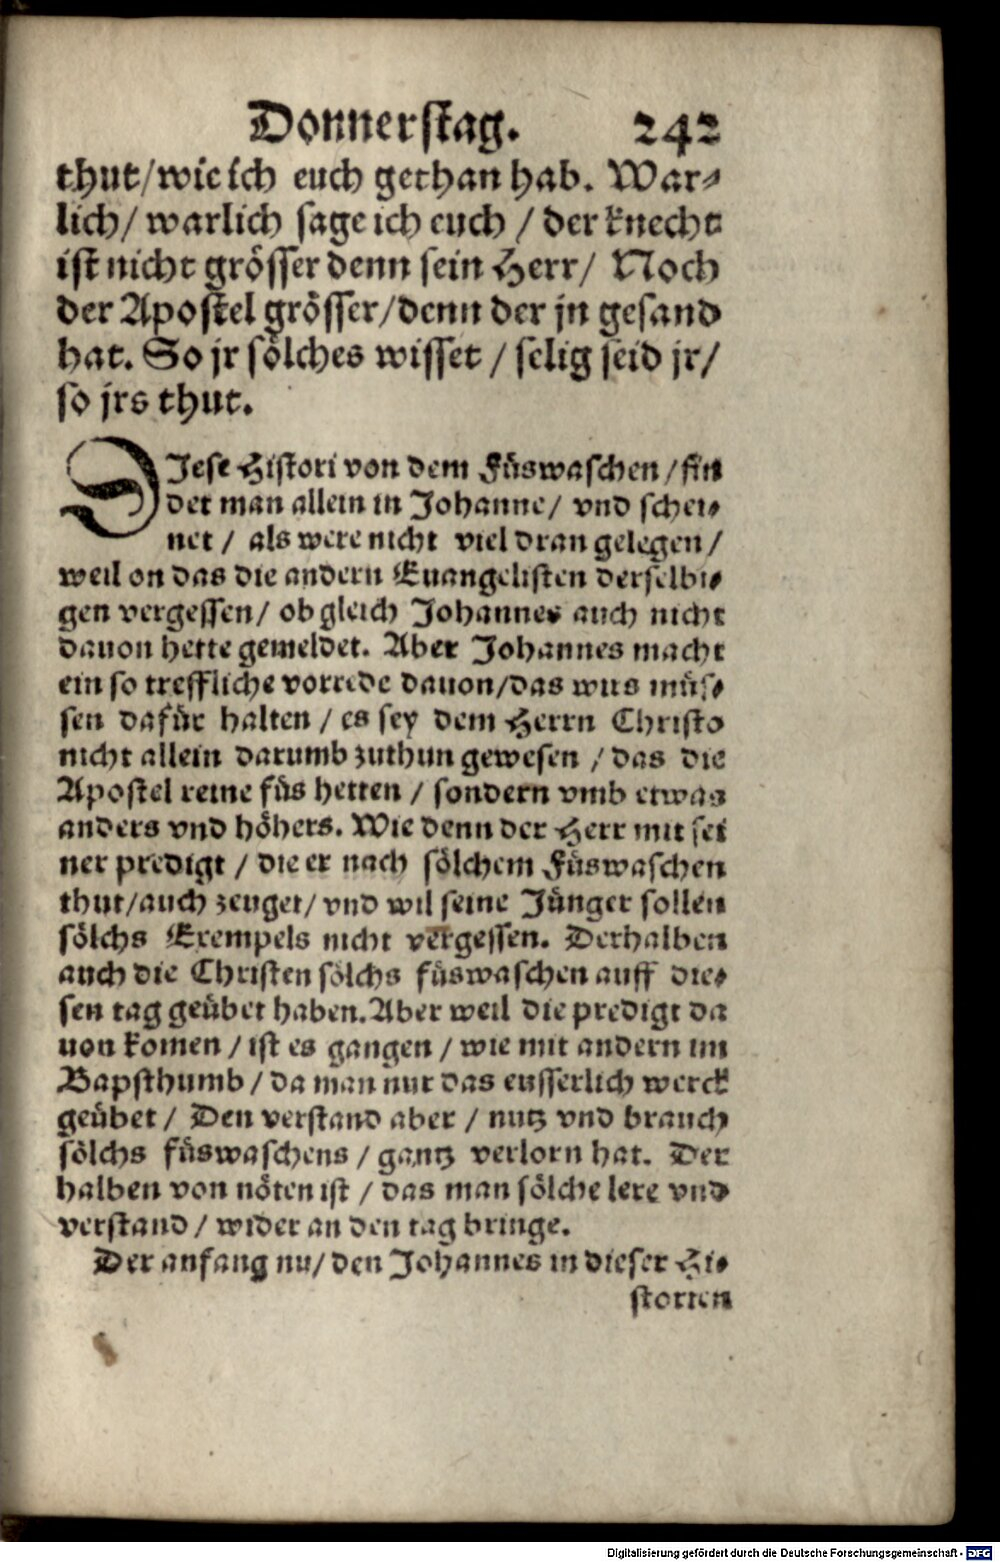 Donnerstag. 242
thut/wie ich euch gethan hab. War⸗
lich/ warlich sage ich euch / der knecht
ist nicht grösser denn sein Herr/ Noch
der Apostel grösser/denn der jn gesand
hat. So jr sölches wisset / selig seid jr/
so jrs thut.
DJese Histori von dem Füswaschen/fin
det man allein in Johanne/ vnd schei⸗
net / als were nicht viel dran gelegen/
weil on das die andern Euangelisten derselbi⸗
gen vergessen/ ob gleich Johannes auch nicht
dauon hette gemeldet. Aber Johannes macht
ein so treffliche vorrede dauon/das wus müs⸗
sen dafür halten / es sey dem Herrn Christo
nicht allein darumb zuthun gewesen / das die
Apostel reine füs hetten / sondern vmb etwas
anders vnd höhers. Wie denn der Herr mit sei
ner predigt / die er nach sölchem Füswaschen
thut/auch zeuget/ vnd wil seine Jünger sollen
sölchs Exempels nicht vergessen. Derhalben
auch die Christen sölchs füswaschen auff die⸗
sen tag geübet haben. Aber weil die predigt da
uon komen / ist es gangen / wie mit andern im
Bapsthumb / da man nur das eusserlich werck
geübet / Den verstand aber / nutz vnd brauch
sölchs füswaschens / gantz verlorn hat. Der
halben von nöten ist / das man sölche lere vnd
verstand / wider an den tag bringe.
Der anfang nu/ den Johannes in dieser Hi⸗
storien
Digitalisierung gefördert durch die Deutsche Forschungsgemeinschaft - DFG